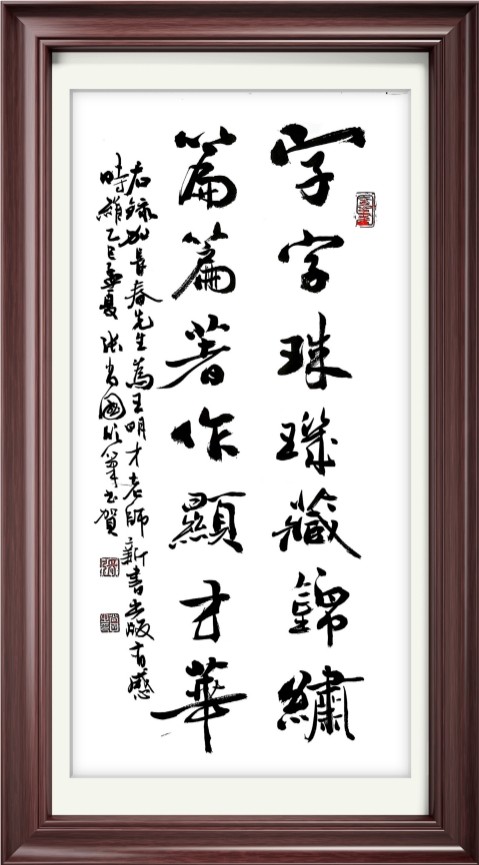 字字珠璣藏錦繡
篇篇著作顯才華
右錄長春先生為王明才老師新書出版有感
時維乙巳孟夏 張國欣筆書賀